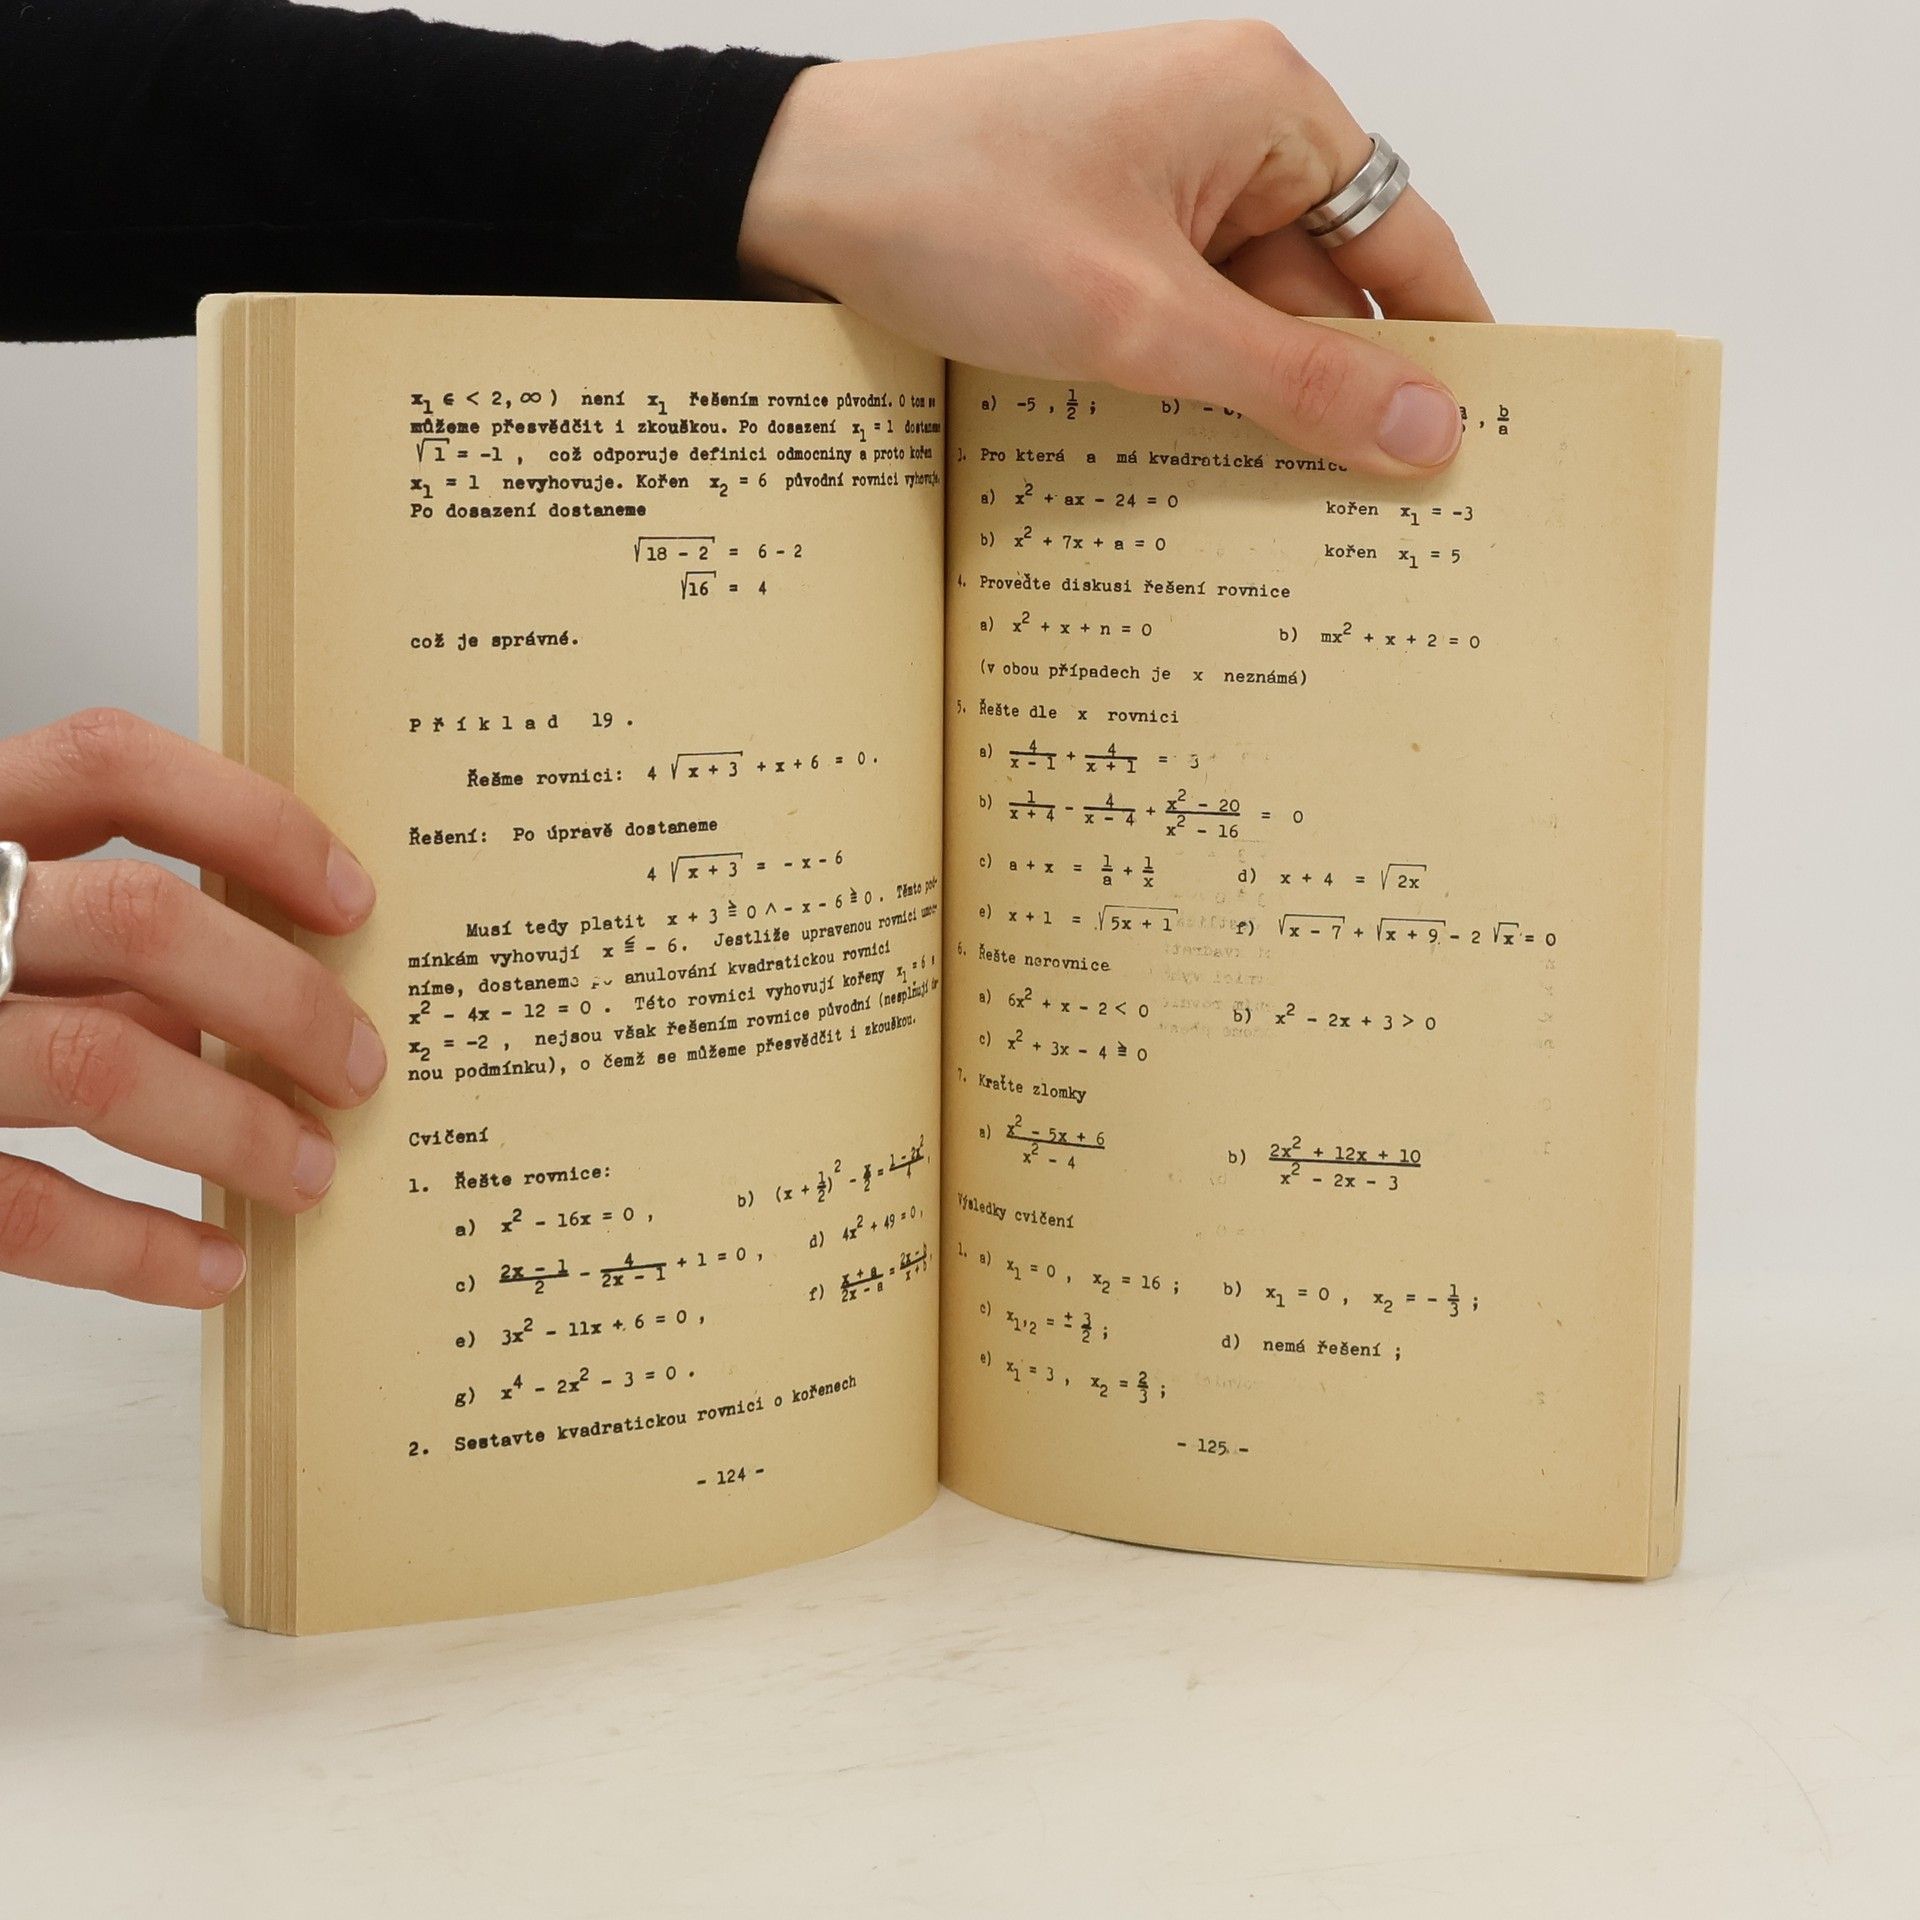 x₁ ∈ < 2, ∞ ) není x₁ řešením rovnice původní. O tom se
můžeme přesvědčit i zkouškou. Po dosazení x₁ = 1 dostaneme
√1 = -1 , což odporuje definici odmocniny a proto kořen
x₁ = 1 nevyhovuje. Kořen x₂ = 6 původní rovnici vyhovuje.
Po dosazení dostaneme
√(18 - 2) = 6 - 2
√16 = 4
což je správné.
P ř í k l a d 19 .
Řešme rovnici: 4 √(x + 3) + x + 6 = 0 .
Řešení: Po úpravě dostaneme
4 √(x + 3) = - x - 6
Musí tedy platit x + 3 ≧ 0 ∧ - x - 6 ≧ 0 . Těmto pod-
mínkám vyhovují x ≦ - 6. Jestliže upravenou rovnici umoc-
níme, dostaneme anulování kvadratickou rovnici
x² - 4x - 12 = 0 . Této rovnici vyhovují kořeny x₁ = 6 a
x₂ = -2 , nejsou však řešením rovnice původní (nesplňují
nou podmínku), o čemž se můžeme přesvědčit i zkouškou.
Cvičení
1. Řešte rovnice:
a) x² - 16x = 0 , b) (x + 1/2)² - x/2 = (1 - 2x²)/4 ,
c) (2x - 1)/2 - 4/(2x - 1) + 1 = 0 , d) 4x² + 49 = 0 ,
e) 3x² - 11x + 6 = 0 , f) (x + a)/(2x - a) =
g) x⁴ - 2x² - 3 = 0 .
2. Sestavte kvadratickou rovnici o kořenech
- 124 -
a) -5 , 1/2 ; b) - , b/a
3. Pro která a má kvadratická rovnice
a) x² + ax - 24 = 0 kořen x₁ = -3
b) x² + 7x + a = 0 kořen x₁ = 5
4. Proveďte diskusi řešení rovnice
a) x² + x + n = 0 b) mx² + x + 2 = 0
(v obou případech je x neznámá)
5. Řešte dle x rovnici
a) 4/(x - 1) + 4/(x + 1) = 3
b) 1/(x + 4) - 4/(x - 4) + (x² - 20)/(x² - 16) = 0
c) a + x = 1/a + 1/x d) x + 4 = √(2x)
e) x + 1 = √(5x + 1) f) √(x - 7) + √(x + 9) - 2 √x = 0
6. Řešte nerovnice
a) 6x² + x - 2 < 0 b) x² - 2x + 3 > 0
c) x² + 3x - 4 ≧ 0
7. Kraťte zlomky
a) (x² - 5x + 6)/(x² - 4) b) (2x² + 12x + 10)/(x² - 2x - 3)
Výsledky cvičení
1. a) x₁ = 0 , x₂ = 16 ; b) x₁ = 0 , x₂ = - 1/3 ;
c) x₁,₂ = ± 3/2 ; d) nemá řešení ;
e) x₁ = 3 , x₂ = 2/3 ;
- 125 -